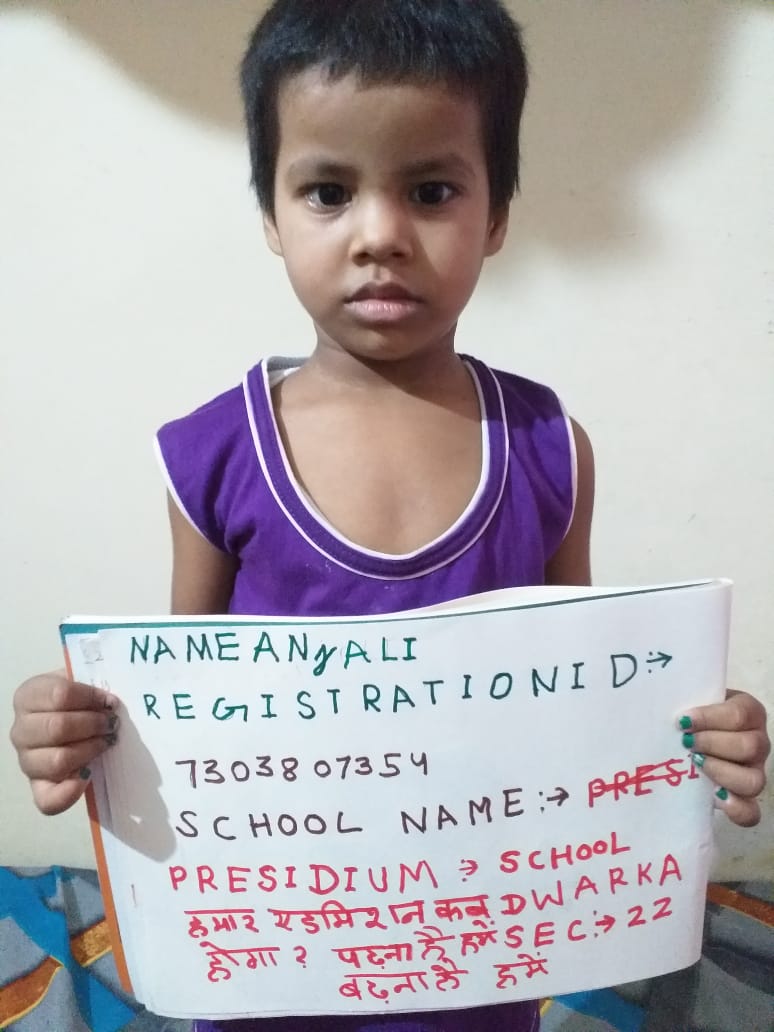 NAME ANJALI
REGISTRATION ID :→
7303807354
SCHOOL NAME :→ PRESI
PRESIDIUM :→ SCHOOL
हमार एडमिशन कब DWARKA
होगा ? पढ़ना है हमें SEC :→ 22
बढ़ना है हमें